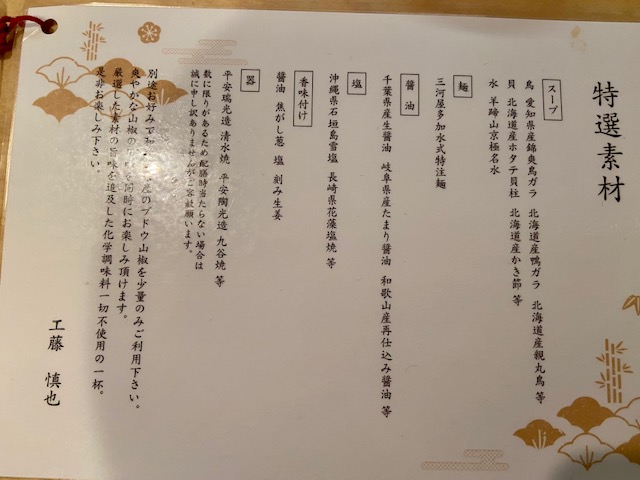 特選素材
スープ
鳥 愛知県産錦爽鳥ガラ 北海道産鴨ガラ 北海道産親丸鳥 等
貝 北海道産ホタテ貝柱 北海道産かき節 等
水 羊蹄山京極名水
麺
三河屋多加水式特注麺
醤油
千葉県産生醤油 岐阜県産たまり醤油 和歌山産再仕込み醤油 等
塩
沖縄県石垣島雪塩 長崎県花藻塩焼 等
香味付け
醤油 焦がし葱 塩 刻み生姜
器
平安瑞光造 清水焼 平安陶光造 九谷焼 等
数に限りがあるため配膳時当たらない場合は
誠に申し訳ありませんがご容赦願います。
別途お好みで和 産のブドウ山椒を少量のみご利用下さい。
爽やかな山椒の 同時にお楽しみ頂けます。
厳選した素材の 味を追及した化学調味料一切不使用の一杯。
是非お楽しみ下さい。
工藤 慎也